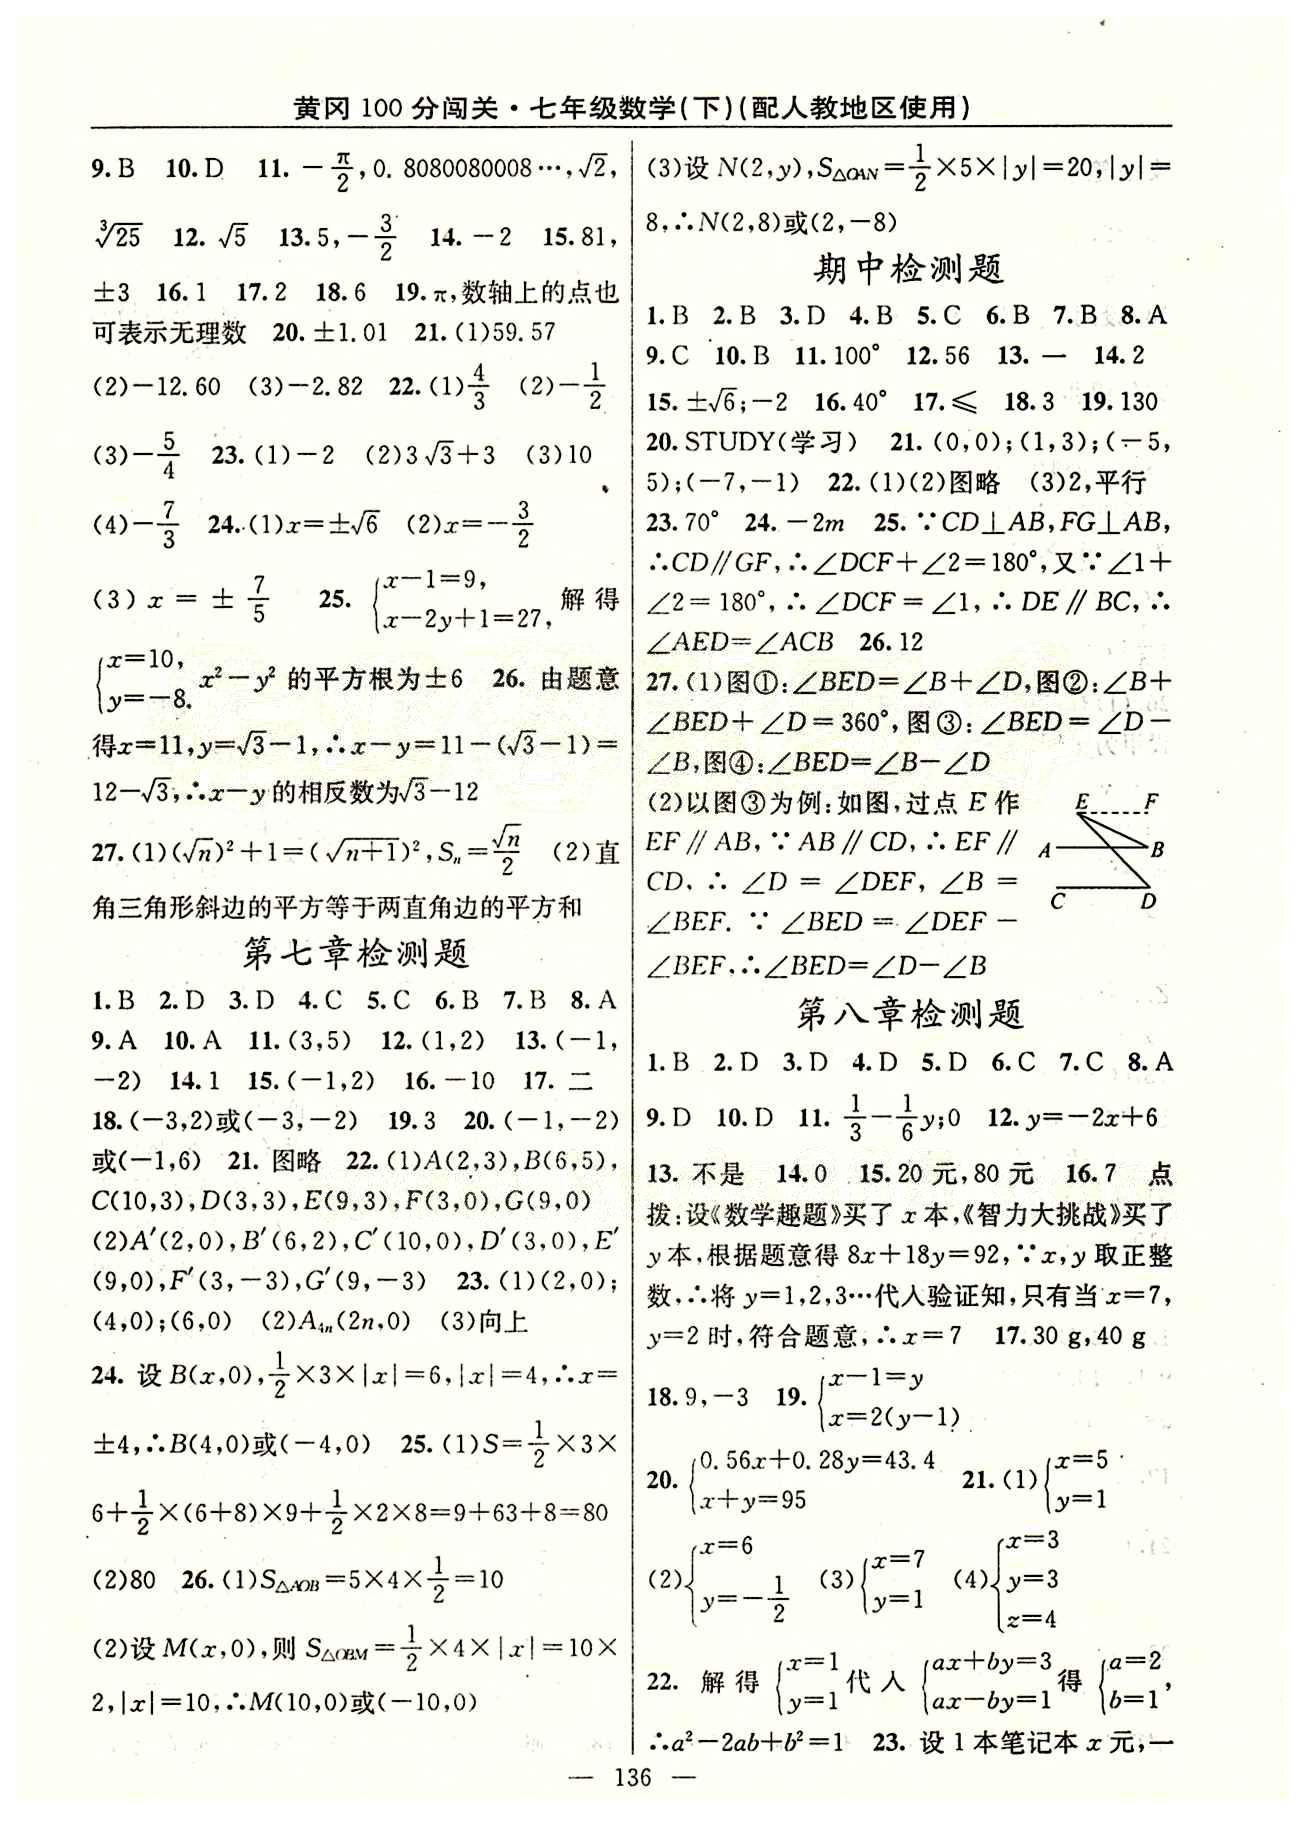 黄冈 100 分闯关·七年级数学(下)(配人教地区使用)
9.B 10.D 11.－π/2,0.8080080008…,√2,
∛25 12.√5 13.5,－3/2 14.－2 15.81,
±3 16.1 17.2 18.6 19.π,数轴上的点也
可表示无理数 20.±1.01 21.(1)59.57
(2)－12.60 (3)－2.82 22.(1)4/3 (2)－1/2
(3)－5/4 23.(1)－2 (2)3√3＋3 (3)10
(4)－7/3 24.(1)x＝±√6 (2)x＝－3/2
(3)x＝±7/5 25.{x－1＝9, x－2y＋1＝27, 解得
{x＝10, y＝－8. x²－y² 的平方根为±6 26. 由题意
得x＝11,y＝√3－1,∴x－y＝11－(√3－1)＝
12－√3,∴x－y的相反数为√3－12
27.(1)(√n)²＋1＝(√(n＋1))²,Sₙ＝√n/2 (2)直
角三角形斜边的平方等于两直角边的平方和
第七章检测题
1.B 2.D 3.D 4.C 5.C 6.B 7.B 8.A
9.A 10.A 11.(3,5) 12.(1,2) 13.(－1,
－2) 14.1 15.(－1,2) 16.－10 17. 二
18.(－3,2)或(－3,－2) 19.3 20.(－1,－2)
或(－1,6) 21. 图略 22.(1)A(2,3),B(6,5),
C(10,3),D(3,3),E(9,3),F(3,0),G(9,0)
(2)A′(2,0),B′(6,2),C′(10,0),D′(3,0),E′
(9,0),F′(3,－3),G′(9,－3) 23.(1)(2,0);
(4,0);(6,0) (2)A₄ₙ(2n,0) (3)向上
24. 设B(x,0),1/2×3×|x|＝6,|x|＝4,∴x＝
±4,∴B(4,0)或(－4,0) 25.(1)S＝1/2×3×
6＋1/2×(6＋8)×9＋1/2×2×8＝9＋63＋8＝80
(2)80 26.(1)S△AOB＝5×4×1/2＝10
(2)设M(x,0),则 S△OBM＝1/2×4×|x|＝10×
2,|x|＝10,∴M(10,0)或(－10,0)
(3)设N(2,y),S△OAN＝1/2×5×|y|＝20,|y|＝
8,∴N(2,8)或(2,－8)
期中检测题
1.B 2.B 3.D 4.B 5.C 6.B 7.B 8.A
9.C 10.B 11.100° 12.56 13. 一 14.2
15.±√6;－2 16.40° 17.≤ 18.3 19.130
20.STUDY(学习) 21.(0,0);(1,3);(－5,
5);(－7,－1) 22.(1)(2)图略 (3)2,平行
23.70° 24.－2m 25.∵CD⊥AB,FG⊥AB,
∴CD∥GF,∴∠DCF＋∠2＝180°,又∵∠1＋
∠2＝180°,∴∠DCF＝∠1,∴DE∥BC,∴
∠AED＝∠ACB 26.12
27.(1)图①:∠BED＝∠B＋∠D,图②:∠B＋
∠BED＋∠D＝360°,图③:∠BED＝∠D－
∠B,图④:∠BED＝∠B－∠D
(2)以图③为例:如图,过点 E 作
EF∥AB,∵AB∥CD,∴EF∥
CD,∴∠D＝∠DEF,∠B＝
∠BEF.∵∠BED＝∠DEF－
∠BEF,∴∠BED＝∠D－∠B
E F
A B
C D
第八章检测题
1.B 2.D 3.D 4.D 5.D 6.C 7.C 8.A
9.D 10.D 11.1/3－1/6y;0 12.y＝－2x＋6
13. 不是 14.0 15.20元,80元 16.7 点
拨:设《数学趣题》买了 x 本,《智力大挑战》买了
y本,根据题意得 8x＋18y＝92,∵x,y 取正整
数,∴将 y＝1,2,3…代人验证知,只有当 x＝7,
y＝2 时,符合题意,∴x＝7 17.30 g,40 g
18.9,－3 19.{x－1＝y x＝2(y－1)
20.{0.56x＋0.28y＝43.4 x＋y＝95 21.(1){x＝5 y＝1
(2){x＝6 y＝－1/2 (3){x＝7 y＝1 (4){x＝3 y＝3 z＝4
22. 解得{x＝1 y＝1 代人{ax＋by＝3 ax－by＝1 得{a＝2 b＝1,
∴a²－2ab＋b²＝1 23. 设1本笔记本 x 元,一
— 136 —